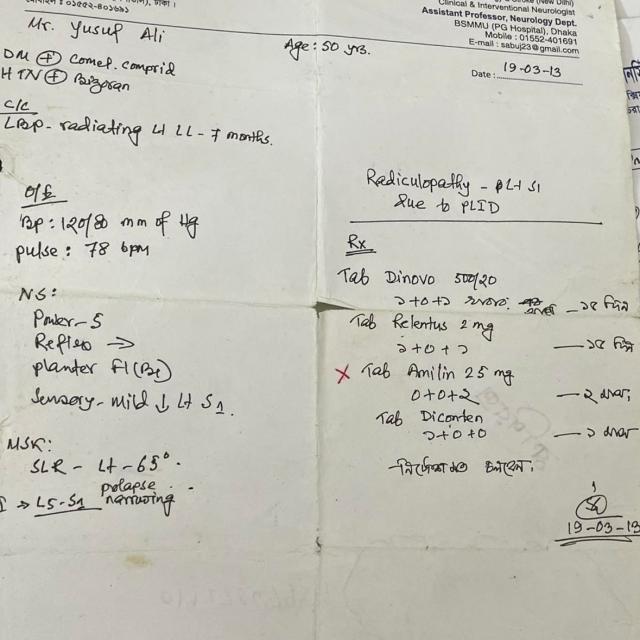 মোবাইল : ০১৫৫২-৪০১৬৯১
Clinical & Interventional Neurologist
Assistant Professor, Neurology Dept.
BSMMU (PG Hospital), Dhaka
Mobile : 01552-401691
E-mail : sabuj23@gmail.com
Mr. Yusuf Ali
Age: 50 yrs.
Date: 19-03-13
DM ⊕ Comet. comprid
HTN ⊕ Bizoran
C/C
LBP - radiating Lt LL - 7 months.
O/E
BP: 120/80 mm of Hg
pulse: 78 bpm
NS:
Power - 5
Reflex →
planter Fl (Be)
Sensory - mild ↓ Lt S1.
MSK:
SLR - Lt - 65°.
prolapse
→ L5-S1 narrowing
Radiculopathy - Lt S1
due to PLID
Rx
Tab Dinovo 500/20
১+০+১ — ১৫ দিন
Tab Relentus 2 mg
১+০+১ — ১৫ দিন
x Tab Amilin 25 mg
0+0+২ — ২ মাস
Tab Diconten
১+0+0 — ১ মাস
নির্দেশমত চলবেন।
19-03-13